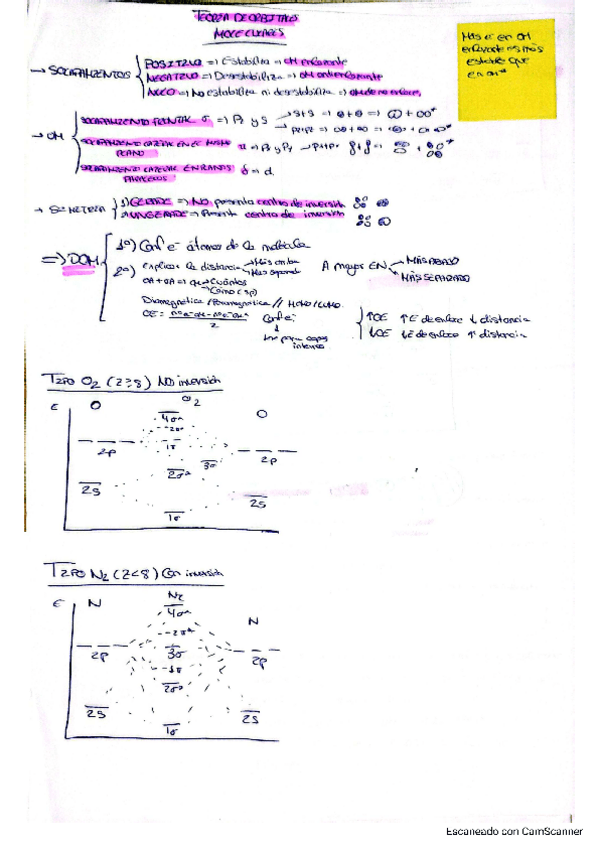 TEORÍA DE ORBITALES
MOLECULARES
→ SOLAPAMIENTOS
POSITIVO => Estabiliza => OM enlazante
NEGATIVO => Desestabiliza => OM antienlazante
NULO => No estabiliza ni desestabiliza => OM de no enlace.
Más e en OM
enlazante es más
estable que
en OM*
→ OM
SOLAPAMIENTO FRONTAL σ => P y S
S+S
SOLAPAMIENTO LATERAL EN EL MISMO
PLANO
SOLAPAMIENTO LATERAL EN PLANOS
PARALELOS δ = d.
→ SIMETRÍA
1) GERADE => NO presenta centro de inversión
2) UNGERADE => Presenta centro de inversión
=> DOM
1º) Conf e⁻ átomos de la molécula
2º) explicar la distancia
Más separado
A mayor EN
MÁS ABAJO
MÁS SEPARADO
OA + OA = que
Cuántos
Cómo (sp)
Diamagnética / Paramagnética // HOMO/LUMO.
OE =
2
Conf e:
interna.
↑OE ↑E de enlace ↓ distancia
↓OE ↓E de enlace ↑ distancia
TIPO O2 (Z≥8) NO inversión
E O O2 O
4σ*
2π*
2p 1π 3σ 2p
2σ*
2s 2s
1σ
TIPO N2 (Z<8) Con inversión
E N N2 N
4σ*
2π*
2p 3σ 2p
1π
2σ*
2s 2s
1σ
Escaneado con CamScanner